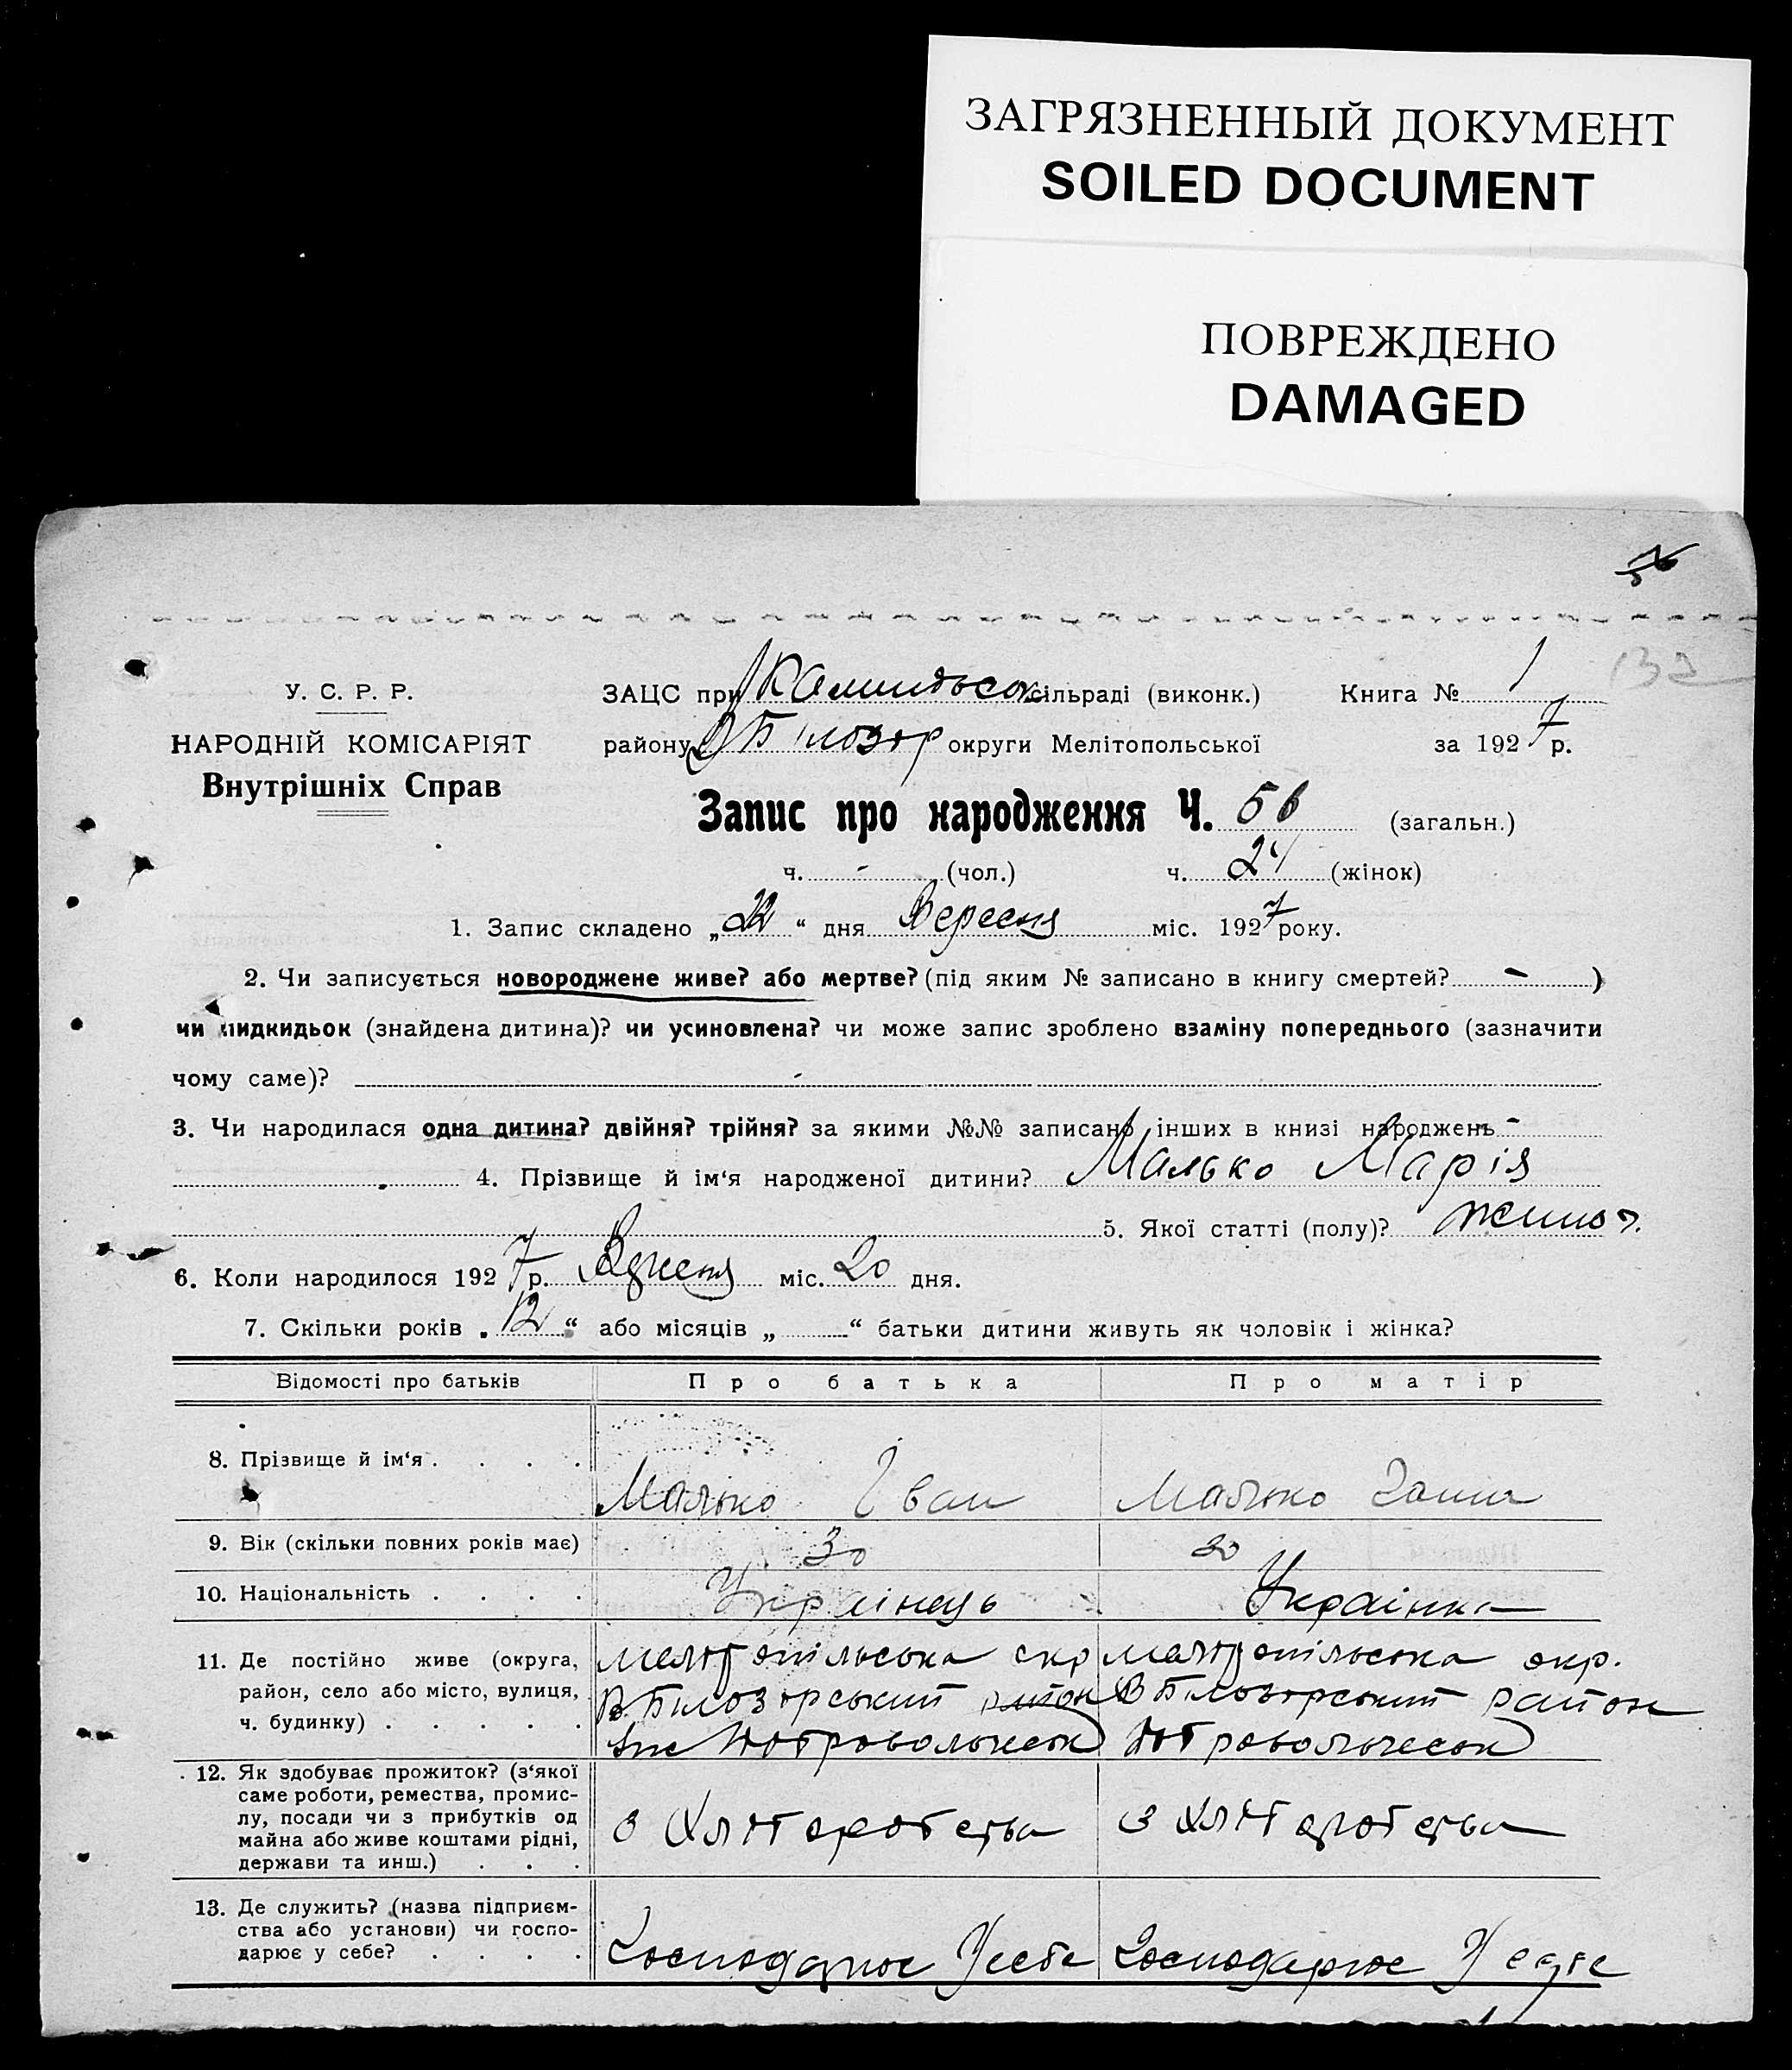 ЗАГРЯЗНЕННЫЙ ДОКУМЕНТ
SOILED DOCUMENT
ПОВРЕЖДЕНО
DAMAGED
132
У. С. Р. Р.
НАРОДНІЙ КОМІСАРІЯТ
Внутрішніх Справ
ЗАЦС при сільраді (виконк.) Книга № 1
району В Білозор округи Мелітопольської за 1927 р.
Запис про народження Ч. 56 (загальн.)
ч. - (чол.) ч. 24 (жінок)
1. Запис складено „22“ дня Вересня міс. 1927 року.
2. Чи записується новороджене живе? або мертве? (під яким № записано в книгу смертей? - )
чи підкидьок (знайдена дитина)? чи усиновлена? чи може запис зроблено взаміну попереднього (зазначити
чому саме)?
3. Чи народилася одна дитина? двійня? трійня? за якими №№ записано інших в книзі народжень -
4. Прізвище й ім‘я народженої дитини? Малько Марія
5. Якої статті (полу)? жиноч.
6. Коли народилося 1927 р. Вересня міс. 20 дня.
7. Скільки років „12“ або місяців „ “ батьки дитини живуть як чоловік і жінка?
Відомості про батьків Про батька Про матір
8. Прізвище й ім‘я . . . . Малько Іван Малько Ганна
9. Вік (скільки повних років має) 30 30
10. Національність . . . . Украінець Украінка
11. Де постійно живе (округа, район, село або місто, вулиця, ч. будинку) . . . . .
Мелітопільська окр Мелітопільська окр.
В. Білозорський район В Білозорський район
12. Як здобуває прожиток? (з‘якої саме роботи, ремества, промислу, посади чи з прибутків од майна або живе коштами рідні, держави та инш.) . . .
З Хліборобства З Хліборобства
13. Де служить? (назва підприємства або установи) чи господарює у себе? . . . .
Господарює У себе Господарює У себе